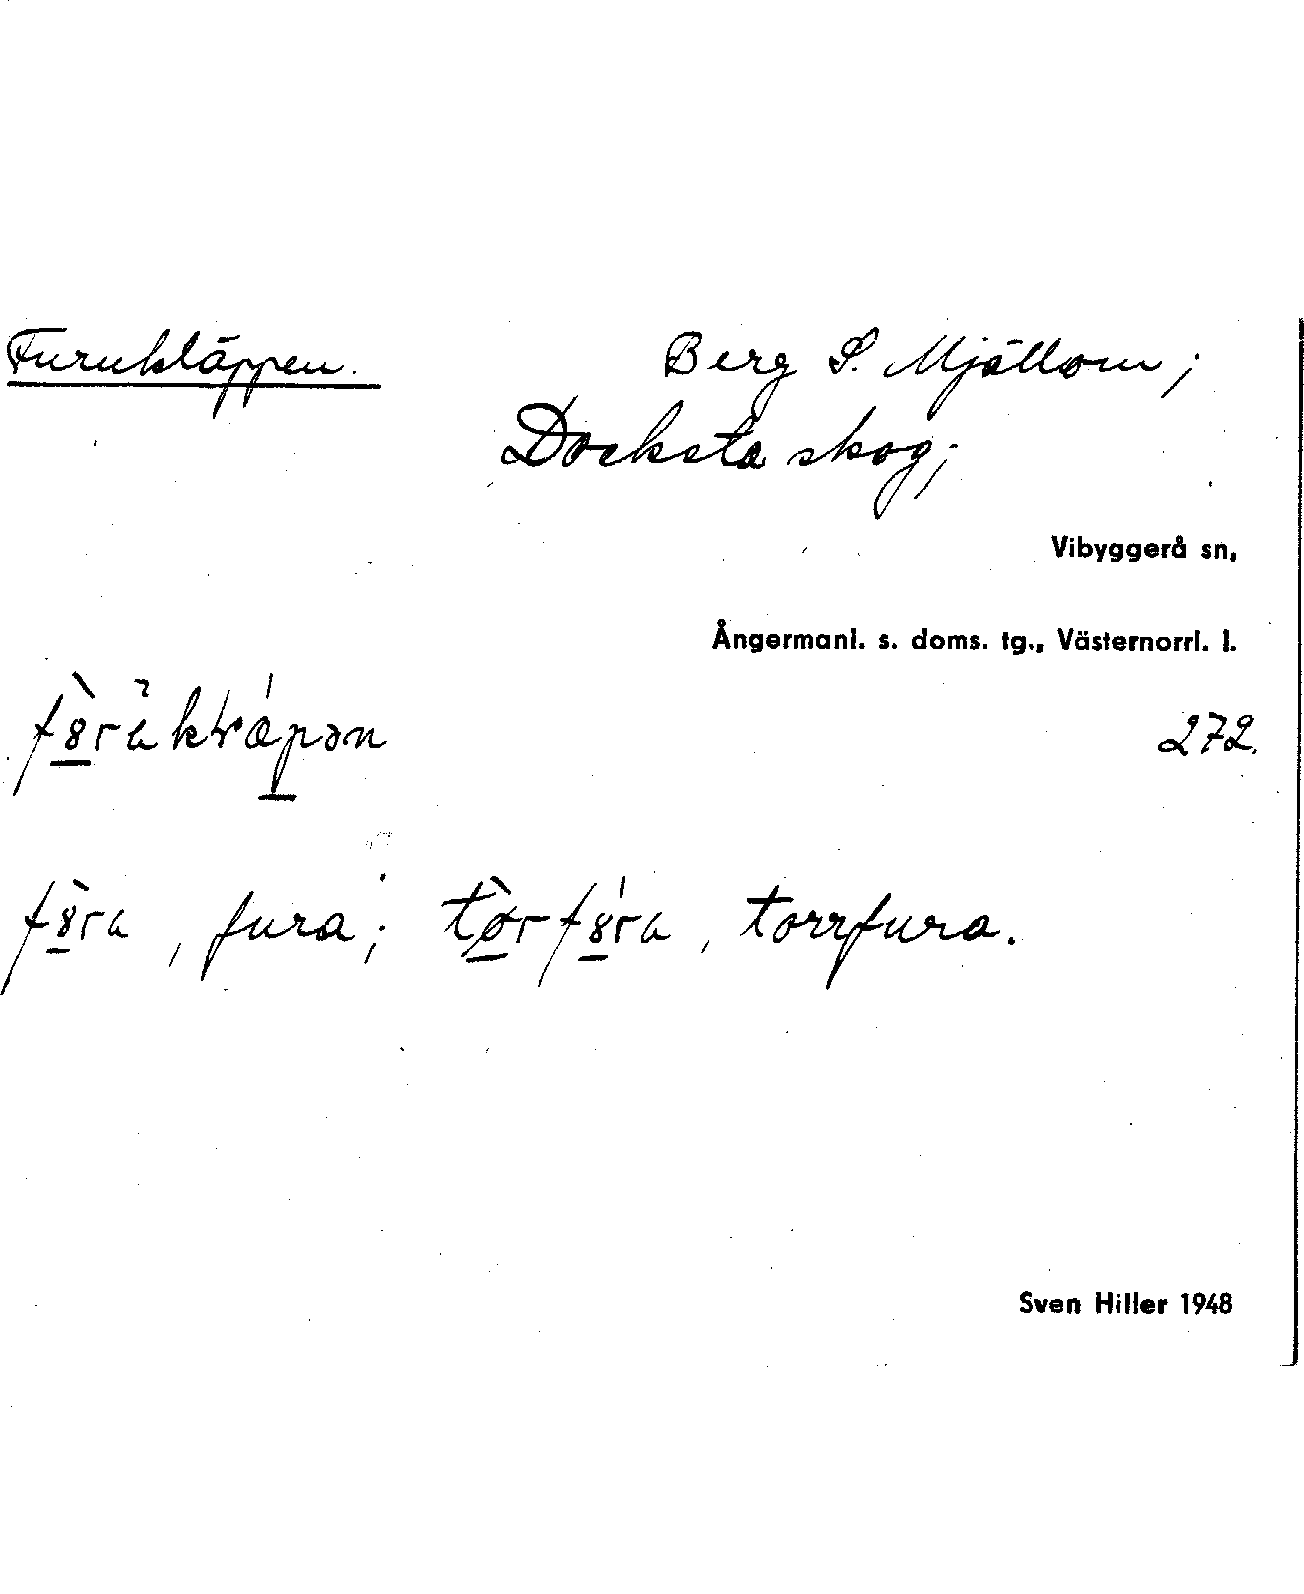 Furukläppen.
Berg S. Mjällom;
Docksta skog;
Vibyggerå sn,
Ångermanl. s. doms. tg., Västernorrl. l.
272.
, fura; , torrfura.
Sven Hiller 1948